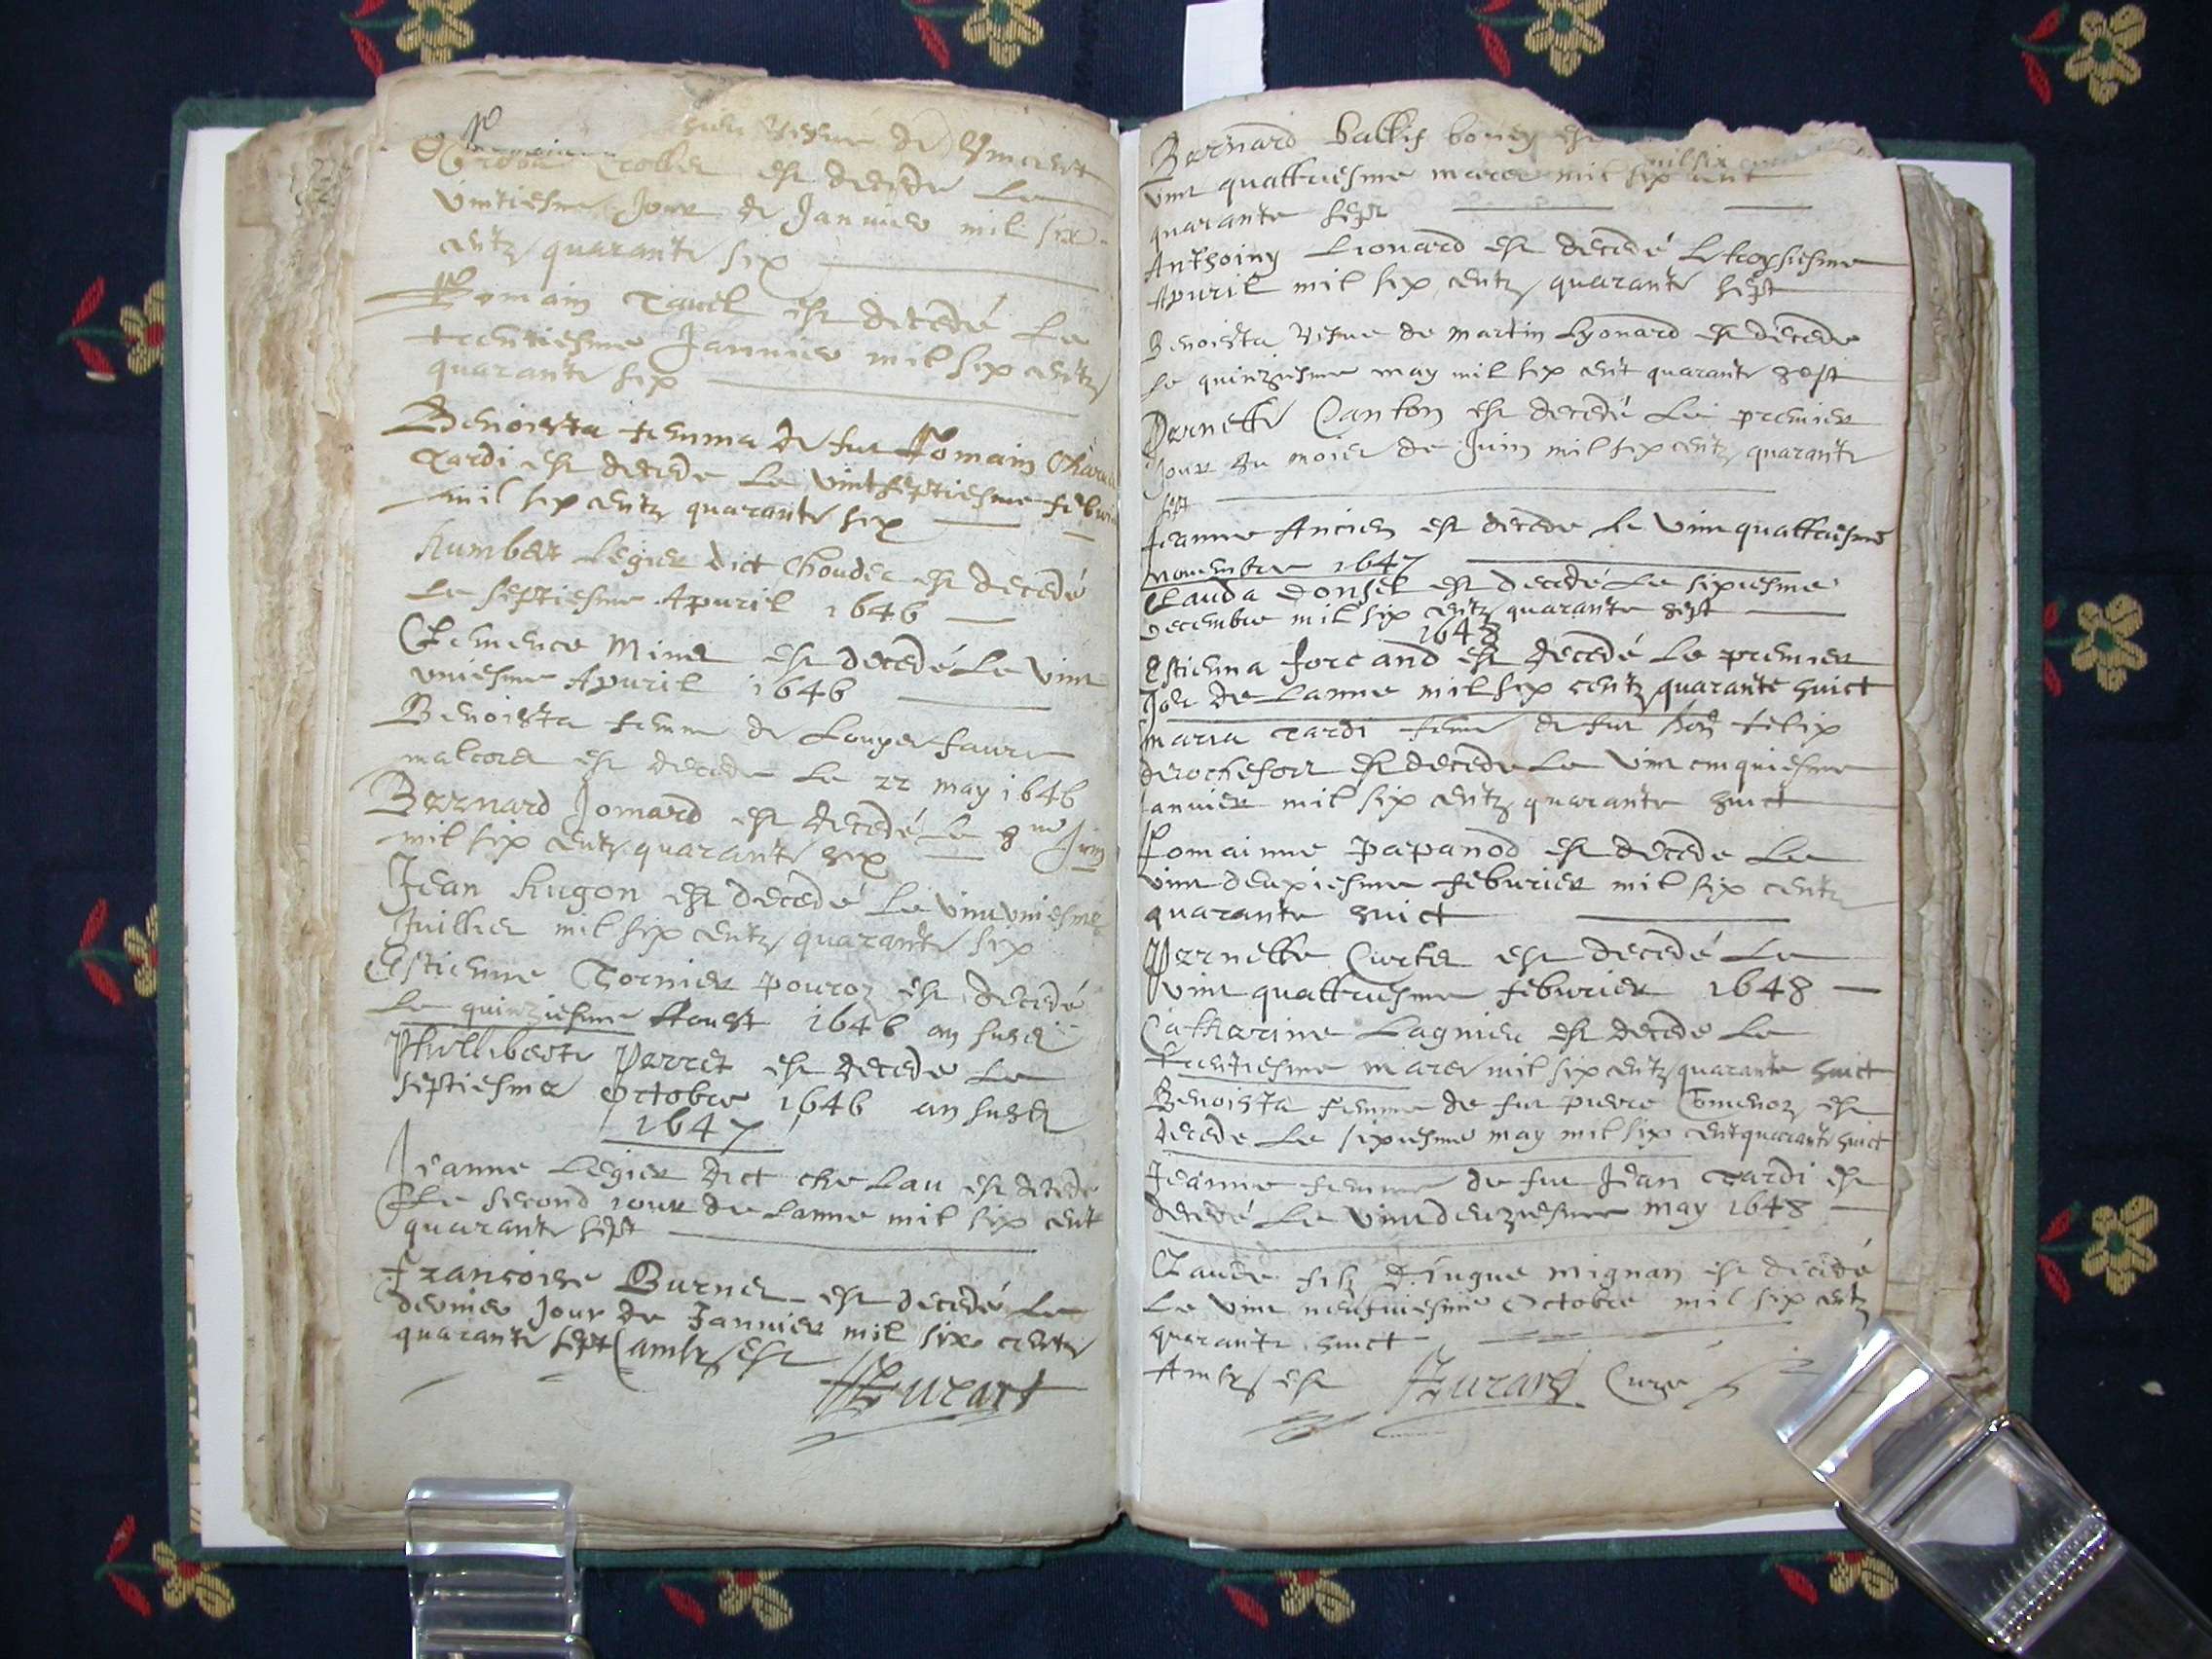 vefue de Vincent
est decede Le
vintiesme Jour de Janvier mil six
centz quarante six
Romain Tavel est decedé Le
trentiesme Jannier mil six centz
quarante six
Benoista femma de fut Romain
Tardi est decede Le vintseptiesme
mil six centz quarante six
humbert Legier dict Choudet est decedé
Le septiesme Apuril 1646
Clemence Minet est decedé Le vint
vniesme Apuril 1646
Benoista femme de Louys faure
est decede Le 22 may 1646
Bernard Jomard est decedé Le 8me Juin
mil six centz quarante six
Jean hugon est decedé Le vintvniesme
Juillier mil six centz quarante six
Estienne Tornier est decedé
Le quinziesme Aoust 1646
Phillibert Perret est decede Le
septiesme Octobre 1646
1647
Jeanne Legier dict est decede
Le second iour de Lanne mil six cent
quarante sept
francoise Burnet est decedé Le
dernier Jour de Jannier mil six centz
quarante sept
Bernard
vint quattriesme mars mil six cent
quarante sept
Anthoiny Lionard est decedé Le troysiesme
Apuril mil six centz quarante sept
Benoista vefue de Martin Lyonard est decede
Le quinziesme may mil six cent quarante sept
Pernette Canton est decedé Le premier
Jour du mois de Juin mil six centz quarante
sept
Jeanne Ancien est decede Le vint quattriesme
novembre 1647
Clauda Donset est decedé Le sixiesme
decembre mil six centz quarante sept
1648
Estienna est decedé Le premier
Jour de Lanne mil six centz quarante huict
Maria Tardi feme de fut felix
derochefort est decede Le vint cinquiesme
Janvier mil six centz quarante huict
Romainne Papanod est decede Le
vint deuxiesme feburier mil six centz
quarante huict
Pernette Curtet est decedé Le
vint quattriesme feburier 1648
Catherine Lagnier est decede Le
trentiesme mars mil six centz quarante huict
Benoista femme de fut pierre est
decede Le sixiesme may mil six cent quarante huict
Jeanne femme de fut Jean Tardi est
decedé Le vintdeuziesme may 1648
Claude filz mignan est decedé
Le vint neufuiesme Octobre mil six centz
quarante huict
Ainsy est Curé